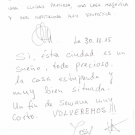 UNA CIUDAD PRECIOSA, UNA CASA MAGNIFICA
Y UNA ANFITRIONA MUY
30.11.15
SI, ESTA CIUDAD ES UN
SUEÑO, TODO PRECIOSO,
LA CASA ESTUPENDA Y
MUY BIEN SITUADA.
UN FIN DE SEMANA MUY
CORTO. VOLVEREMOS!!!